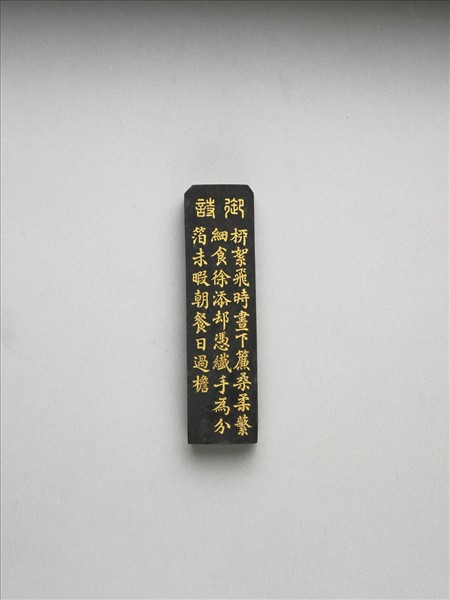 御詩
桺絮飛時晝下簾桑柔蘩
細食徐添却憑纖手為分
箔未暇朝餐日過檐